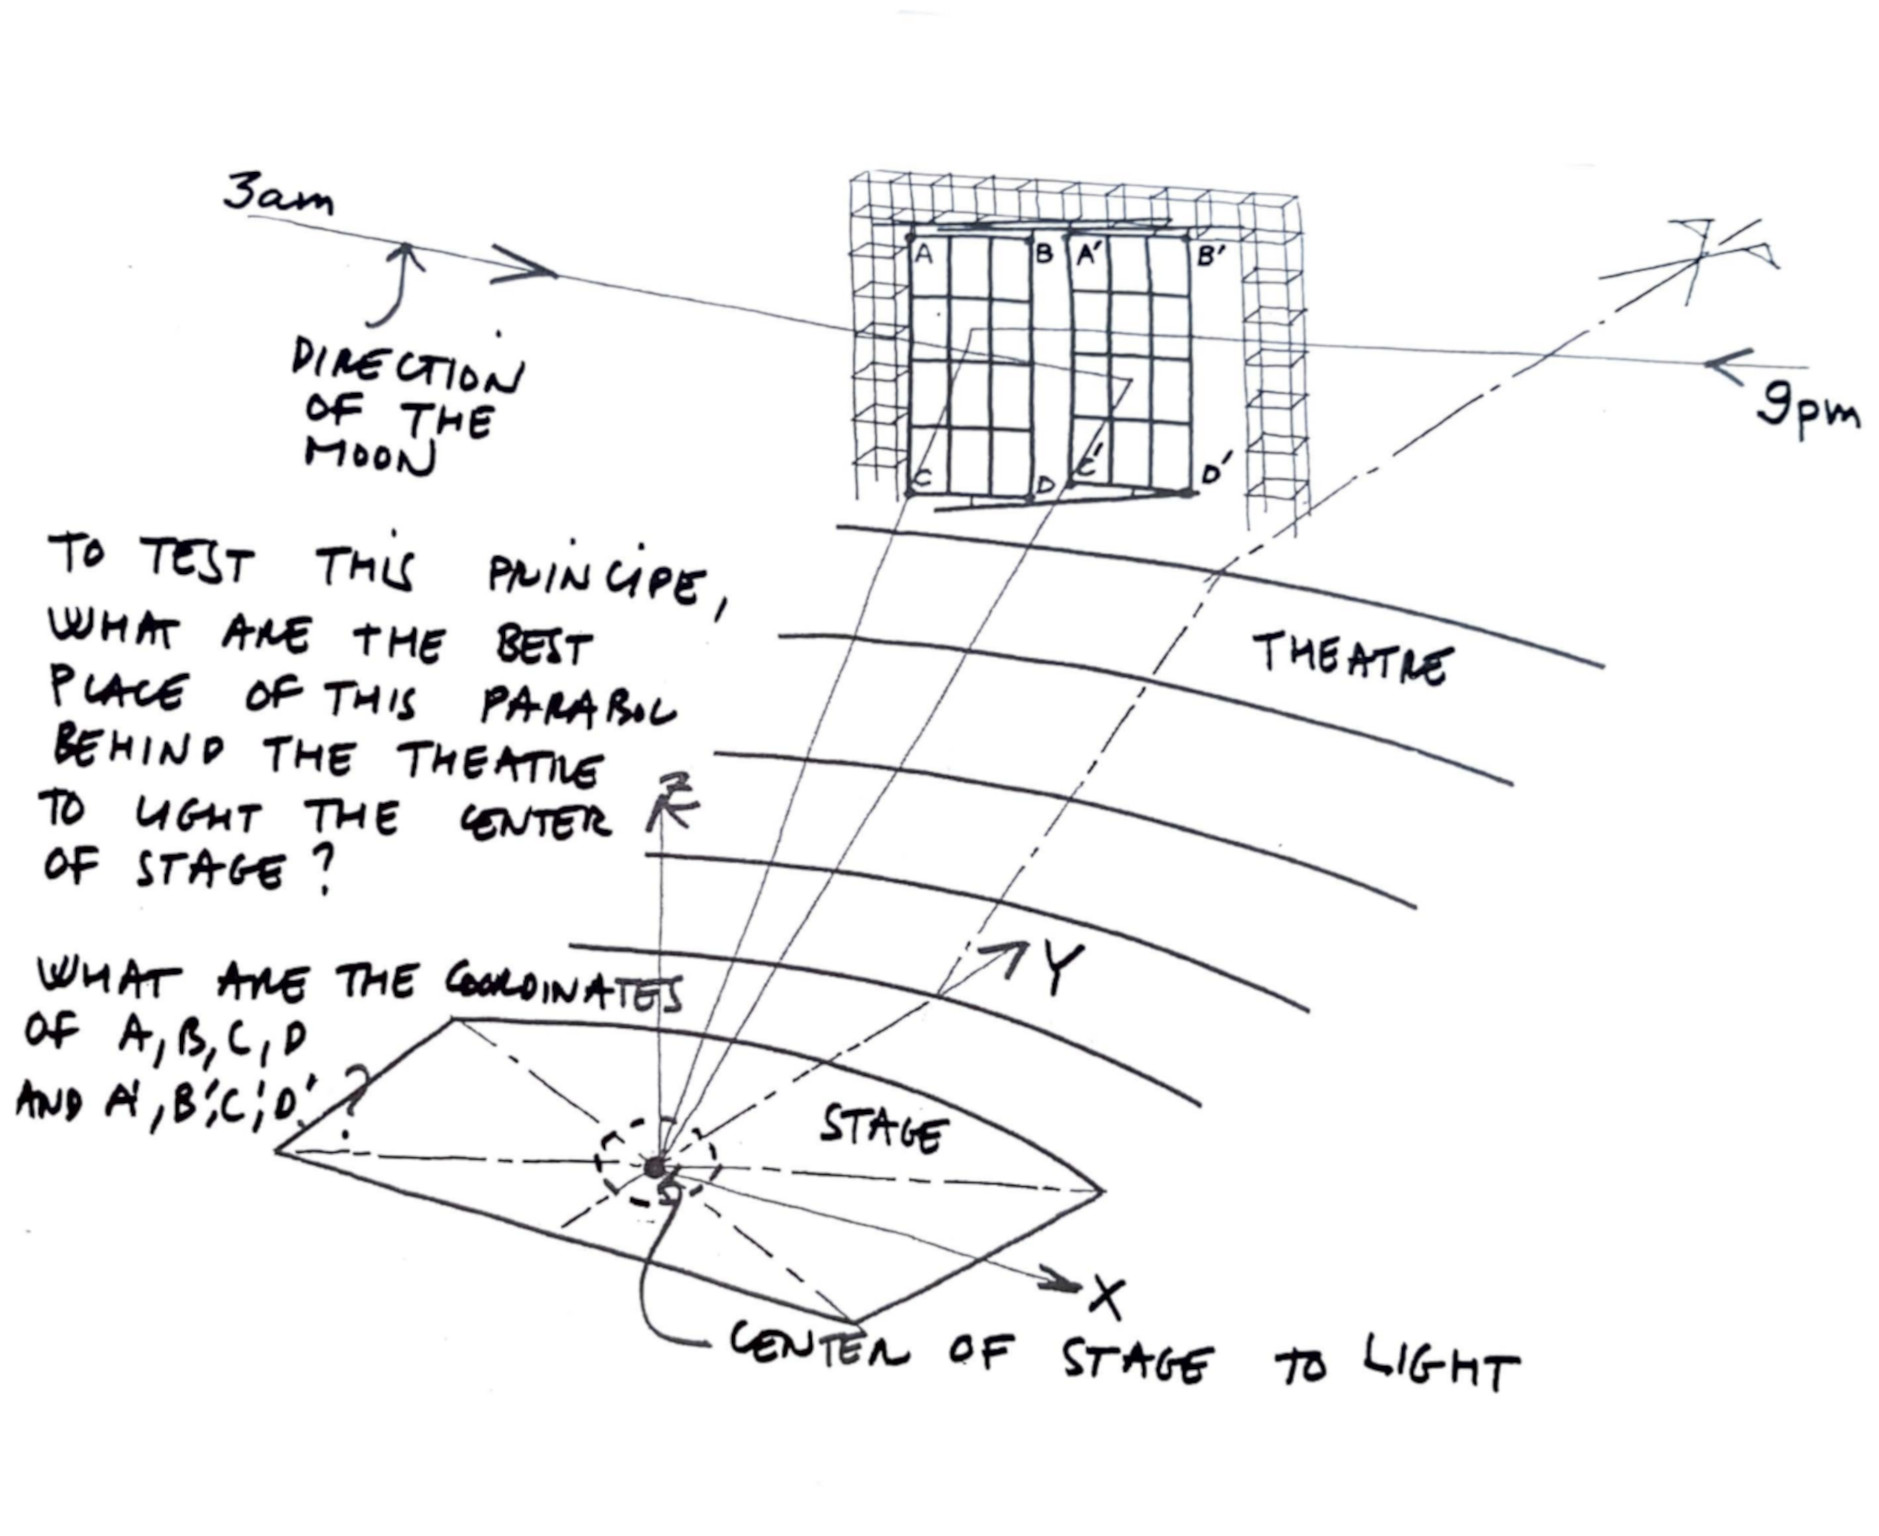 3am
A
B
A'
B'
DIRECTION
OF THE
MOON
9pm
C
D
C'
D'
TO TEST THIS PRINCIPE,
WHAT ARE THE BEST
PLACE OF THIS PARABOL
BEHIND THE THEATRE
TO LIGHT THE CENTER
OF STAGE ?
THEATRE
Z
Y
WHAT ARE THE COORDINATES
OF A, B, C, D
AND A', B', C', D' ?
STAGE
X
CENTER OF STAGE TO LIGHT